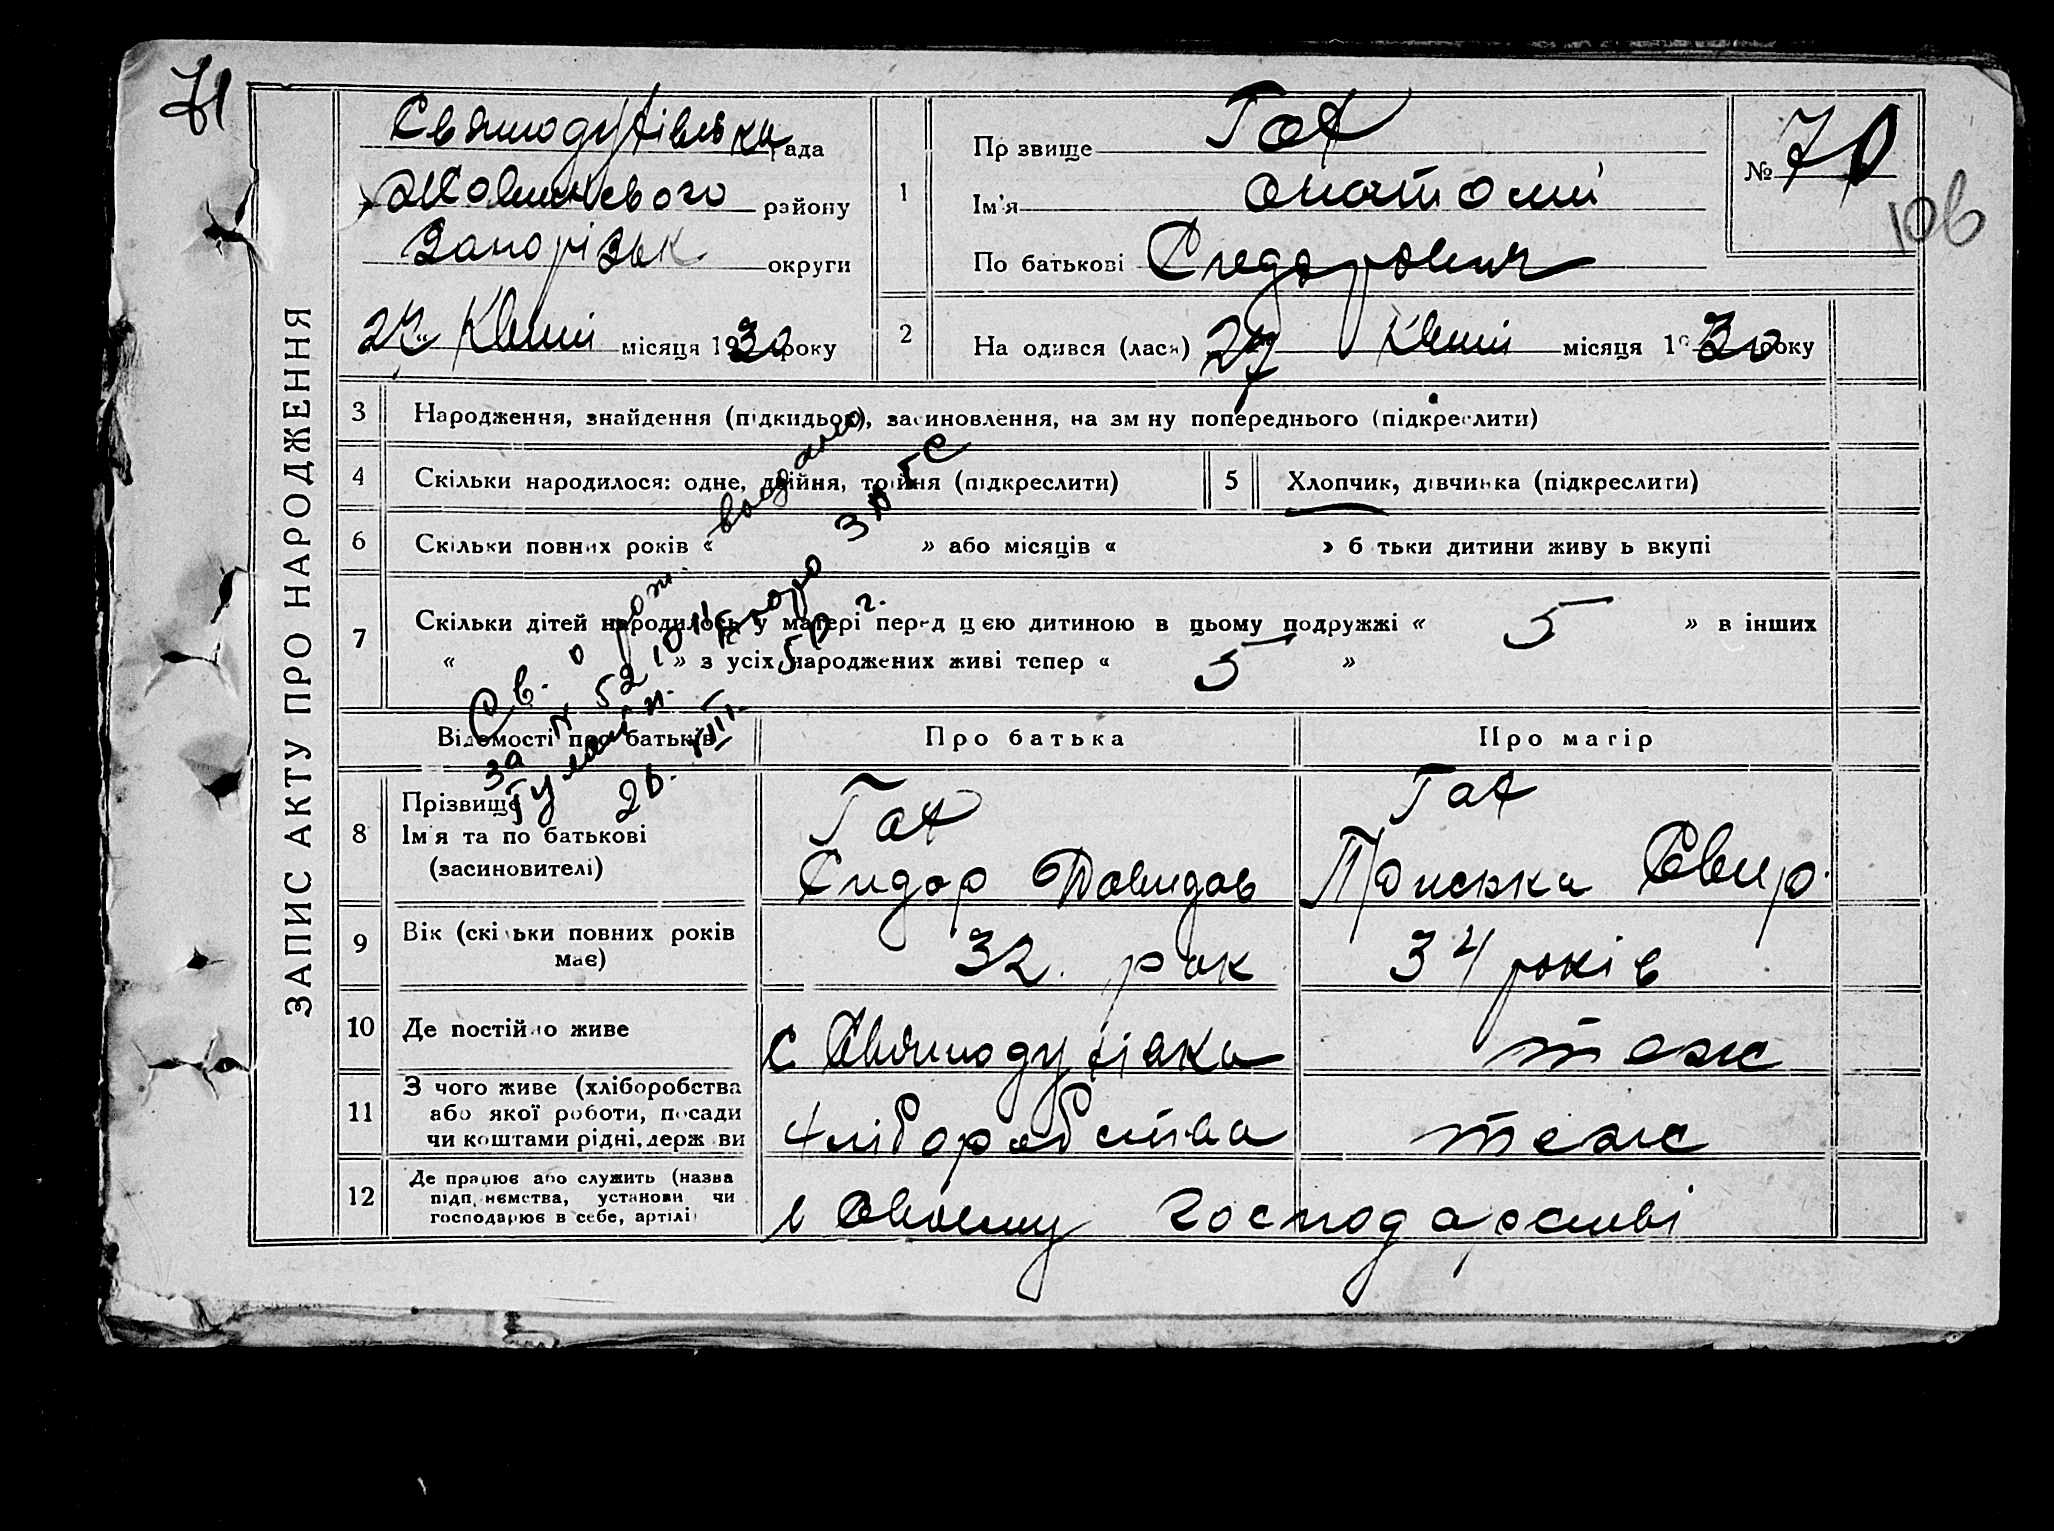 71
Святодухівська рада
Жовтневого району
Запорізьк округи
27 Квіт місяця 1930 року
1
Прізвище Гах
Ім'я Анатолій
По батькові Сидорович
№ 70
106
2
На одився (лася) 27 Квіт місяця 1930 року
ЗАПИС АКТУ ПРО НАРОДЖЕННЯ
3 Народження, знайдення (підкидьок), засиновлення, на зм ну попереднього (підкреслити)
4 Скільки народилося: одне, двійня, тройня (підкреслити)
5 Хлопчик, дівчинка (підкреслити)
6 Скільки повних років « » або місяців « » б тьки дитини живу ь вкупі
7 Скільки дітей народилось у матері перед цією дитиною в цьому подружжі « 5 » в інших
« » з усіх народжених живі тепер « 5 »
Св. о рож. выдано
за № 521011
ЗАГС
26. VIII. 50 г.
Відомості про батьків
Про батька
Про матір
8 Прізвище
Ім'я та по батькові
(засиновителі)
Гах
Сидор Давидов
Гах
Приська Свир.
9 Вік (скільки повних років
має)
32. рок
34 років
10 Де постійно живе
с Святодухівка
теж
11 З чого живе (хліборобства
або якої роботи, посади
чи коштами рідні, держ ви
хліборобства
теж
12 Де працює або служить (назва
підп ємства, установи чи
господарює в себе, артілі
в своєму господарстві